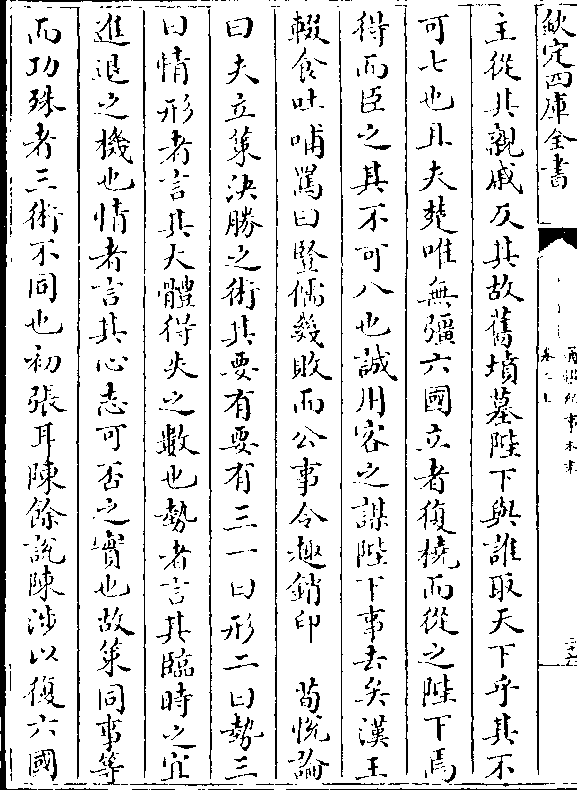 欽定四庫全書
主從其親戚反其故舊墳墓陛下與誰取天下乎其不
可七也且夫楚唯無彊六國立者復橈而從之陛下焉
得而臣之其不可八也誠用客之謀陛下事去矣漢王
輟食吐哺罵曰豎儒幾敗而公事令趣銷印　荀悅論
曰夫立策決勝之術其要有要有三一曰形二曰勢三
曰情形者言其大體得失之數也勢者言其臨時之宜
進退之機也情者言其心志可否之實也故策同事等
而功殊者三術不同也初張耳陳餘說陳涉以復六國